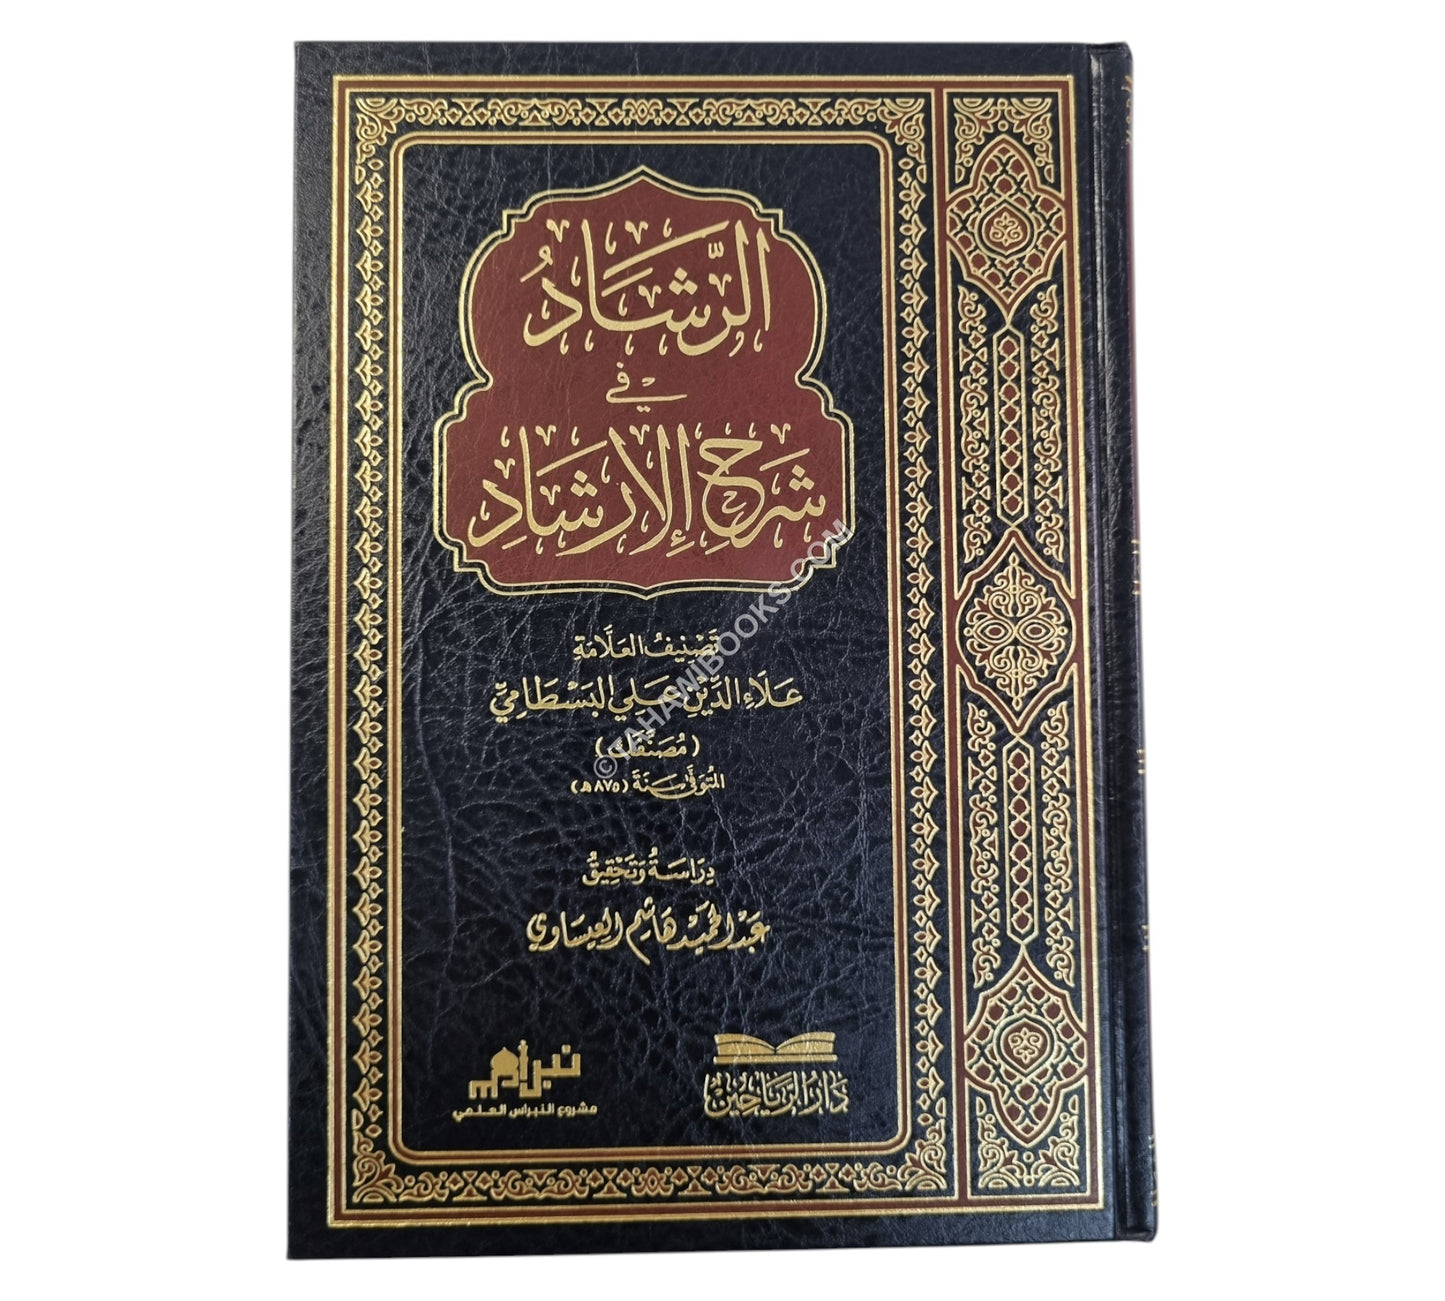 الرَّشَادُ
في
شَرْحِ الإِرْشَادِ
تَصْنِيفُ العَلَّامَةِ
عَلَاءِ الدِّيْنِ عَلِي البَسْطَامِيِّ
(مُصَنِّفَك)
المُتَوَفَّى سَنَةَ (٨٧٥هـ)
دِرَاسَةُ وَتَحْقِيقُ
عَبْدالحَمِيْد هَاشِم العِيسَاوِي
دَارُ الرَّيَاحِيْن
نبراس
مشروع النبراس العلمي
©TAHAWIBOOKS.COM